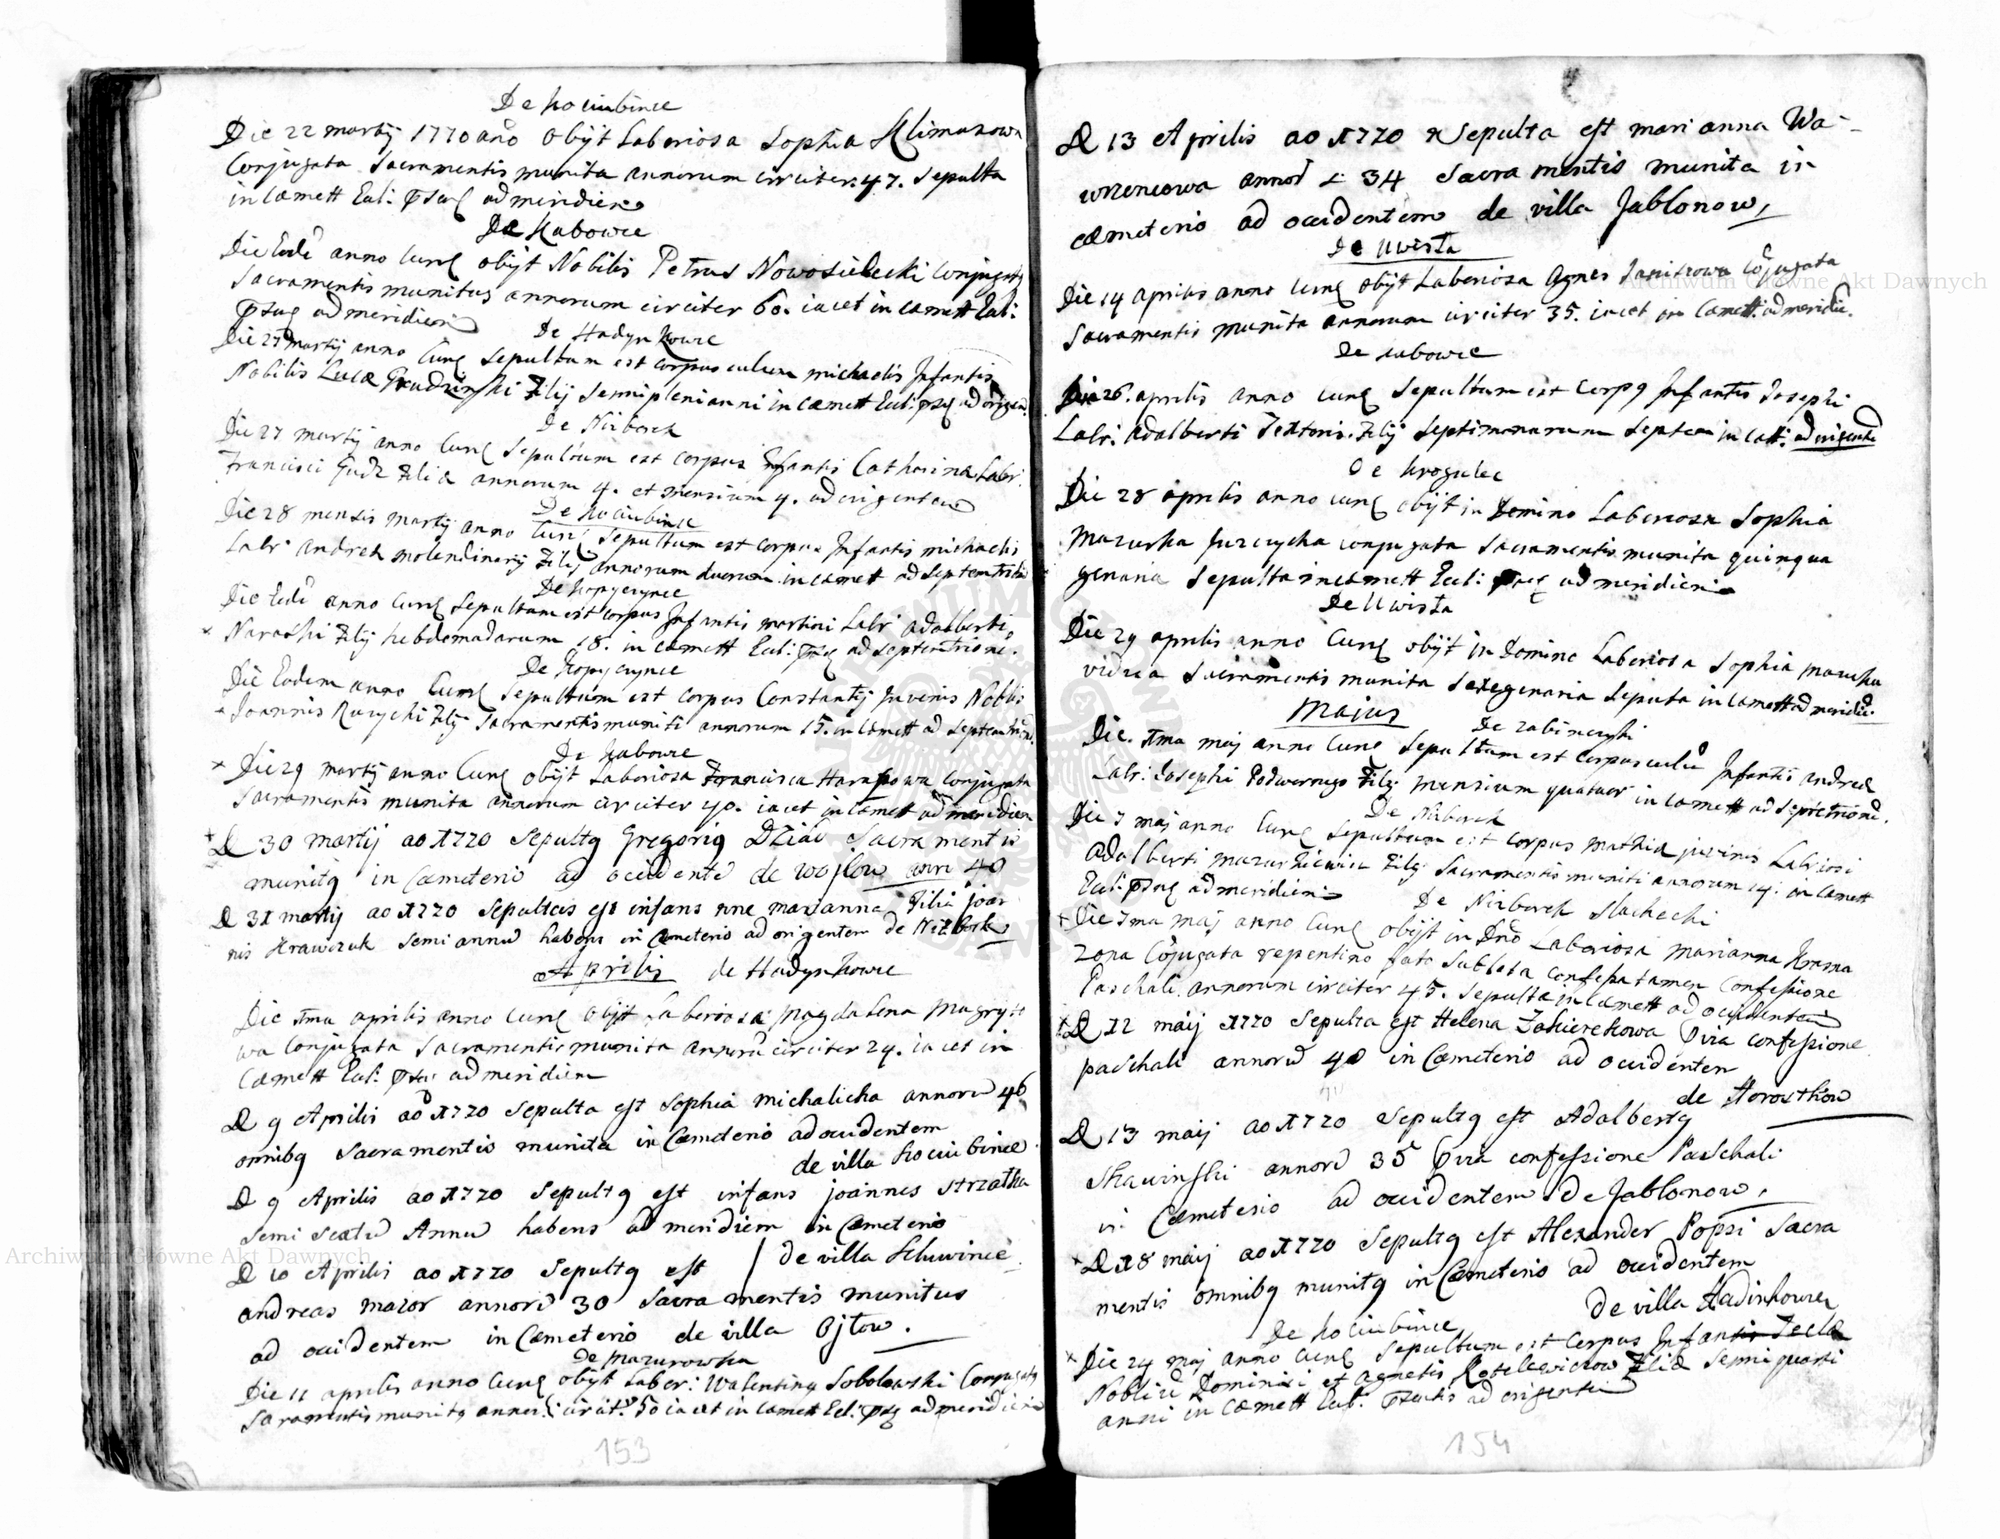 De Kociubince
Die 22 martij 1770 ano obijt Laboriosa Sophia Klimaszowa
Conjugata Sacramentis munita annorum circiter 47. Sepulta
in Cæmett Eccl: ad meridiem
De Kabowce
Die anno Curr obijt Nobilis Petrus Nowosielecki Conjugatq
Sacramentis munitus annorum circiter 60. iacet in Cæmett Eccl:
ad meridiem
De Hadynkowce
Die 27 martij anno Curr Sepultum est corpusculum michaelis Infantis
Nobilis Lucæ Grudzinski Filij Semipleni anni in Cæmett Eccl: ad origen.
De Nizborek
Die 27 martij anno Curr Sepultum est corpus Infantis Catharina Labr.
Francisci Gudz Filiæ annorum 4. et mensium 4. ad origentem
De Kociubince
Die 28 mensis martij anno Curr Sepultum est corpus Infantis michaelis
Labr andreæ molendinarij Filij annorum duorum in Cæmett ad Septemtrion
De Kopyczynce
Die anno Curr Sepultum est corpus Infantis martini Labr adalberti
Naraski Filij hebdomadarum 18. in Cæmett Eccl: ad Septentrione.
De Kopyczynce
Die Eodem anno Curr Sepultum est corpus Constantij Juvenis Nobilis
Joannis Rucycki Filij Sacramentis muniti annorum 15. in Cæmett ad Septentrion.
De Kabowce
Die 29 martij anno Curr obijt Laboriosa Francisca Harapowa Conjugata
Sacramentis munita annorum circiter 40. iacet in Cæmett ad meridiem
D 30 martij ao 1770 Sepultq Gregoriq Dziad Sacramentis
munitq in Cæmeterio ad occidente de annr 40
D 31 martij ao 1770 Sepultus est infans marianna Filia Joan
nis Krawczuk Semi annu habens in Cæmeterio ad origentem de Nizborek
Aprilis de Hadynkowce
Die 1ma aprilis anno Curr obijt Laboriosa Magdalena Magryt
wa Conjugata Sacramentis munita annoru circiter 24. iacet in
Cæmett Eccl: ad meridiem
D 9 Aprilis ao 1770 Sepulta est Sophia michalicha annoru 46
omnibq Sacramentis munita in Cæmeterio ad occidentem
de villa Kociubince
D 9 Aprilis ao 1770 Sepultq est infans joannes Strzatka
Semi Annu habens ad meridiem in Cæmeterio
de villa Schuwince
D 10 Aprilis ao 1770 Sepultq est
andreas mazor annoru 30 Sacramentis munitus
ad occidentem in Cæmeterio de villa Ojtow.
De Mazurowka
Die 11 aprilis anno Curr obijt Labor: Walentinq Sobolewski Conjugatq
Sacramentis munitq annor: circiter 50 iacet in Cæmett Ecl: ad meridiem
153
D 13 Aprilis ao 1770 Sepulta est marianna Wa-
wrzencowa annor 34 Sacramentis munita in
cæmeterio ad occidentem de villa Jablonow,
De Uwista
Die 14 aprilis anno Curr obijt Laboriosa Agnes Conjugata
Sacramentis munita annorum circiter 35. iacet in Cæmett: ad meridie.
De Kabowce
Die 26. aprilis anno curr Sepultum est Corpq Infantis Josephi
Labr: Adalberti Textoris. Filij Septimanarum Septem in Cæt: ad origente
De Krogulec
Die 28 aprilis anno curr obijt in Domino Laboriosa Sophia
Mazurka Jurczycha conjugata Sacramentis munita quinqua
genaria Sepulta in Cæmett Eccl: ad meridiem
De Uwista
Die 29 aprilis anno Curr obijt in Domino Laboriosa Sophia
vidua Sacramentis munita Sexegenaria Sepulta in Cæmett ad meridie.
Maius De zabinczyki
Die. 1ma maj anno Curr Sepultum est corpusculu Infantis andreæ
Labr: Josephi Podwornego Filij mensium quatuor in Cæmett ad Septetrione.
De Nizborek
Die 7 maj anno Curr Sepultum est corpus mathiæ juvenis Laboriosi
adalberti mazurkiewicz Filij Sacramentis muniti annorum 14. in Cæmett
Eccl: ad meridiem
De Nizborek Slachecki
Die 7ma maj anno Curr obijt in Dno Laboriosa Marianna Krama
zona Cojugata repentino fato Sublata confessa tamen Confessione
Paschali. annorum circiter 45. Sepulta in Cæmett ad occidentem
D 12 maij 1770 Sepulta est Helena Zasierekowa confessione
paschali annoru 40 in Cæmeterio ad occidentem
de Horostkow
D 13 maij ao 1770 Sepultq est Adalbertq
Skawinski annoru 35 confessione Paschali
in Cæmeterio ad occidentem de Jablonow,
D 18 maij ao 1770 Sepultq est Alexander Popsi Sacra
mentis omnibq munitq in Cæmeterio ad occidentem
De villa Hadinkowce
De Kociubince
Die 24 maj anno Curr Sepultum est Corpus Infantis Teclæ
Nobiliu Dominici et Agnetis Kotelewiczow Filiæ Semi quarti
anni in Cæmett Eccl: ad origentem
154
Archiwum Główne Akt Dawnych
Archiwum Główne Akt Dawnych